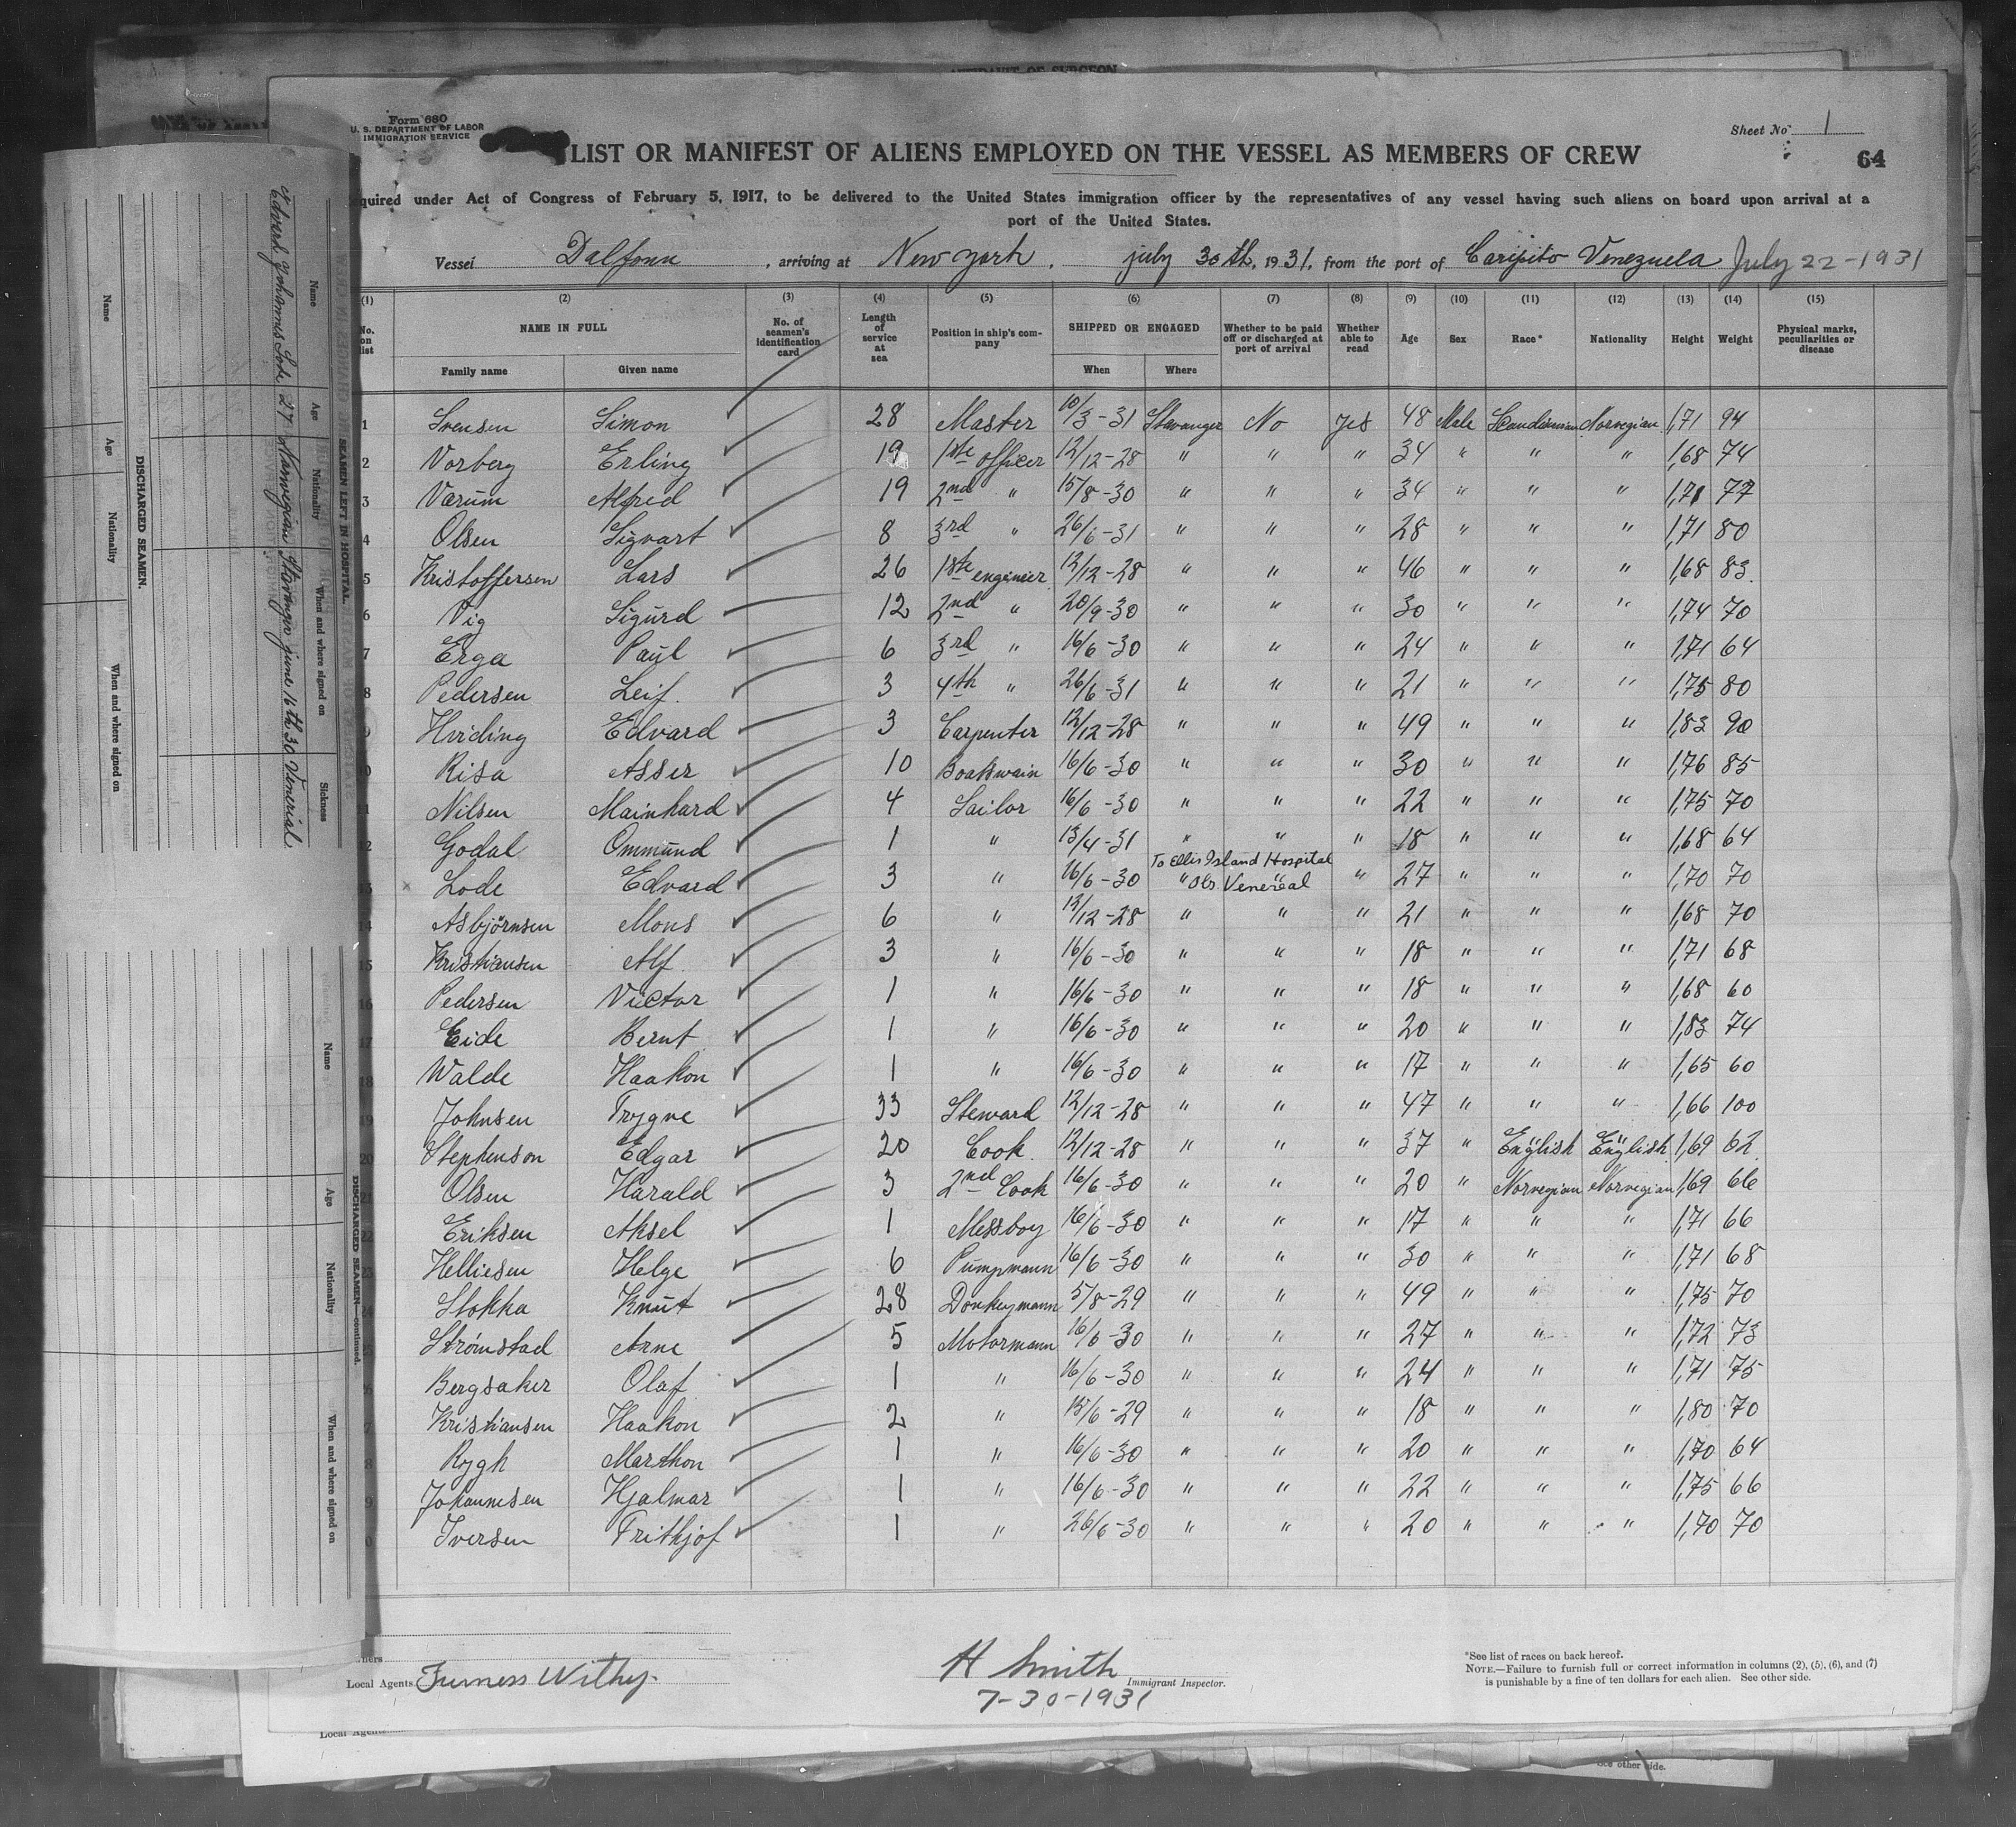 AFFIDAVIT OF SURGEON
Form 680
U. S. DEPARTMENT OF LABOR
IMMIGRATION SERVICE
Sheet No. 1
LIST OR MANIFEST OF ALIENS EMPLOYED ON THE VESSEL AS MEMBERS OF CREW
64
quired under Act of Congress of February 5, 1917, to be delivered to the United States immigration officer by the representatives of any vessel having such aliens on board upon arrival at a
port of the United States.
Vessel Dalfonn, arriving at New york, july 30th, 1931, from the port of Caripito Venezuela July 22-1931
(1) (2) (3) (4) (5) (6) (7) (8) (9) (10) (11) (12) (13) (14) (15)
No. on list NAME IN FULL No. of seamen's identification card Length of service at sea Position in ship's company SHIPPED OR ENGAGED Whether to be paid off or discharged at port of arrival Whether able to read Age Sex Race* Nationality Height Weight Physical marks, peculiarities or disease
Family name Given name When Where
1 Svensen Simon 28 Master 10/3-31 Stavanger No Yes 48 Male Scandinavian Norwegian 1,71 94
2 Vorberg Erling 19 1ste officer 12/12-28 " " " 34 " " " 1,68 74
3 Værum Alfred 19 2nd " 15/8-30 " " " 34 " " " 1,71 77
4 Olsen Sigvart 8 3rd " 26/6-31 " " " 28 " " " 1,71 80
5 Kristoffersen Lars 26 1ste engineer 12/12-28 " " " 46 " " " 1,68 83
6 Vig Sigurd 12 2nd " 20/9-30 " " " 30 " " " 1,74 70
7 Erga Paul 6 3rd " 16/6-30 " " " 24 " " " 1,71 64
8 Pedersen Leif 3 4th " 26/6-31 " " " 21 " " " 1,75 80
9 Hviding Edvard 3 Carpenter 12/12-28 " " " 49 " " " 1,83 90
0 Risa Asser 10 Boatswain 16/6-30 " " " 30 " " " 1,76 85
1 Nilsen Mainhard 4 Sailor 16/6-30 " " " 22 " " " 1,75 70
2 Godal Ommund 1 " 13/4-31 " " " 18 " " " 1,68 64
To Ellis Island Hospital
13 Lode Edvard 3 " 16/6-30 " Obs. Venereal " 27 " " " 1,70 70
14 Asbjörnsen Mons 6 " 12/12-28 " " " 21 " " " 1,68 70
15 Kristiansen Alf 3 " 16/6-30 " " " 18 " " " 1,71 68
16 Pedersen Victor 1 " 16/6-30 " " " 18 " " " 1,68 60
17 Eide Bernt 1 " 16/6-30 " " " 20 " " " 1,83 74
18 Walde Haakon 1 " 16/6-30 " " " 17 " " " 1,65 60
19 Johnsen Trygve 33 Steward 12/12-28 " " " 47 " " " 1,66 100
20 Stephenson Edgar 20 Cook 12/12-28 " " " 37 " English English 1,69 62
21 Olsen Harald 3 2nd Cook 16/6-30 " " " 20 " Norwegian Norwegian 1,69 66
22 Eriksen Aksel 1 Messboy 16/6-30 " " " 17 " " " 1,71 66
23 Helliesen Helge 6 Pumpmann 16/6-30 " " " 30 " " " 1,71 68
24 Stokka Knut 28 Donkeymann 5/8-29 " " " 49 " " " 1,75 70
25 Strømstad Arne 5 Motormann 16/6-30 " " " 27 " " " 1,72 73
6 Bergsaker Olaf 1 " 16/6-30 " " " 24 " " " 1,71 75
7 Kristiansen Haakon 2 " 15/6-29 " " " 18 " " " 1,80 70
8 Rygh Marthon 1 " 16/6-30 " " " 20 " " " 1,70 64
9 Johannesen Hjalmar 1 " 16/6-30 " " " 22 " " " 1,75 66
0 Iversen Frithjof 1 " 26/6-30 " " " 20 " " " 1,70 70
Local Agents Furness Withy
H Smith Immigrant Inspector.
7-30-1931
*See list of races on back hereof.
NOTE.—Failure to furnish full or correct information in columns (2), (5), (6), and (7)
is punishable by a fine of ten dollars for each alien. See other side.
Local Agents
See other side.
SEAMEN LEFT IN HOSPITAL.
Name Age Nationality When and where signed on Sickness
Edvard Johannes Lode 27 Norwegian Stavanger june 16th 30 Venerial
DISCHARGED SEAMEN.
Name Age Nationality When and where signed on
DISCHARGED SEAMEN—continued.
Name Age Nationality When and where signed on